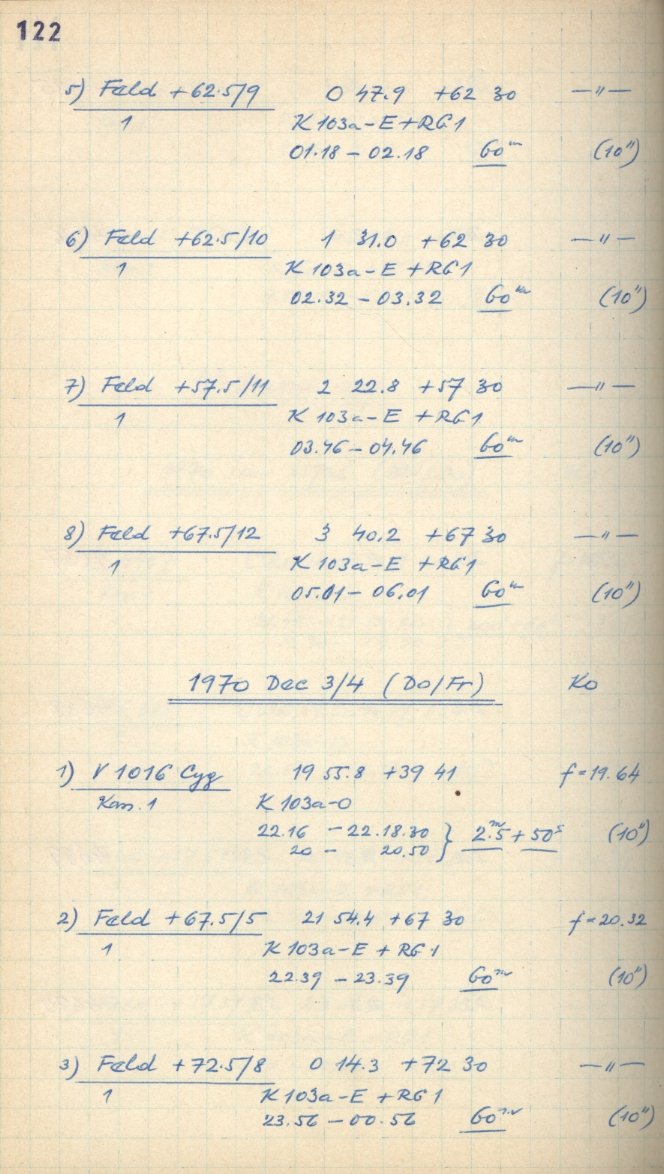 122
5) Feld +62.5/9 0 47.9 +62 30 —"—
1 K 103a-E+RG1
01.18 - 02.18 60m (10")
6) Feld +62.5/10 1 31.0 +62 30 —"—
1 K 103a-E +RG1
02.32 - 03.32 60m (10")
7) Feld +57.5/11 2 22.8 +57 30 —"—
1 K 103a-E +RG1
03.46 - 04.46 60m (10")
8) Feld +67.5/12 3 40.2 +67 30 —"—
1 K 103a-E +RG1
05.01 - 06.01 60m (10")
1970 Dec 3/4 (Do/Fr) Ko
1) V 1016 Cyg 19 55.8 +39 41 f=19.64
Kass. 1 K 103a-O
22.16 - 22.18.30 } 2m.5 + 50s (10")
20 - 20.50
2) Feld +67.5/5 21 54.4 +67 30 f=20.32
1 K 103a-E + RG1
22.39 - 23.39 60m (10")
3) Feld +72.5/8 0 14.3 +72 30 —"—
1 K 103a-E + RG1
23.56 - 00.56 60m (10")